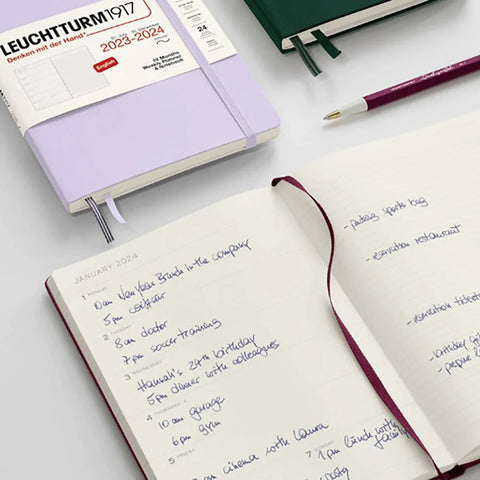 LEUCHTTURM1917
Denken mit der Hand
2023-2024
English
18 Months
Weekly Planner
& Notebook
24
JANUARY 2024
1 MONDAY
10am New Year Brunch in the company
5pm coiffeur
2 TUESDAY
8am doctor
7pm soccer training
3 WEDNESDAY
Hannah's 24th birthday
5pm dinner with colleagues
4 THURSDAY
10am garage
6pm gym
5 FRIDAY
cinema with Laura
7 SUNDAY
1pm lunch with
family
party
- packing sports bag
- reservation restaurant
- reservation tickets
- birthday
- prepare